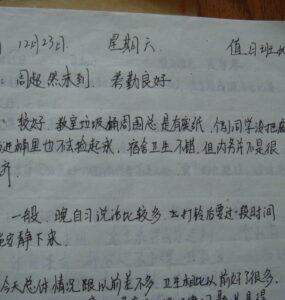 12月23日. 星期六 值日班
: 周超然未到. 考勤良好
: 较好. 教室垃圾桶周围总是有废纸, 个别同学没把废
进桶里也不去捡起来, 宿舍卫生不错, 但内务不是很
齐
一般. 晚自习说话比较多. 打铃后要过一段时间
安静下来.
今天总体情况跟以前差不多. 卫生相比从前好了很多.